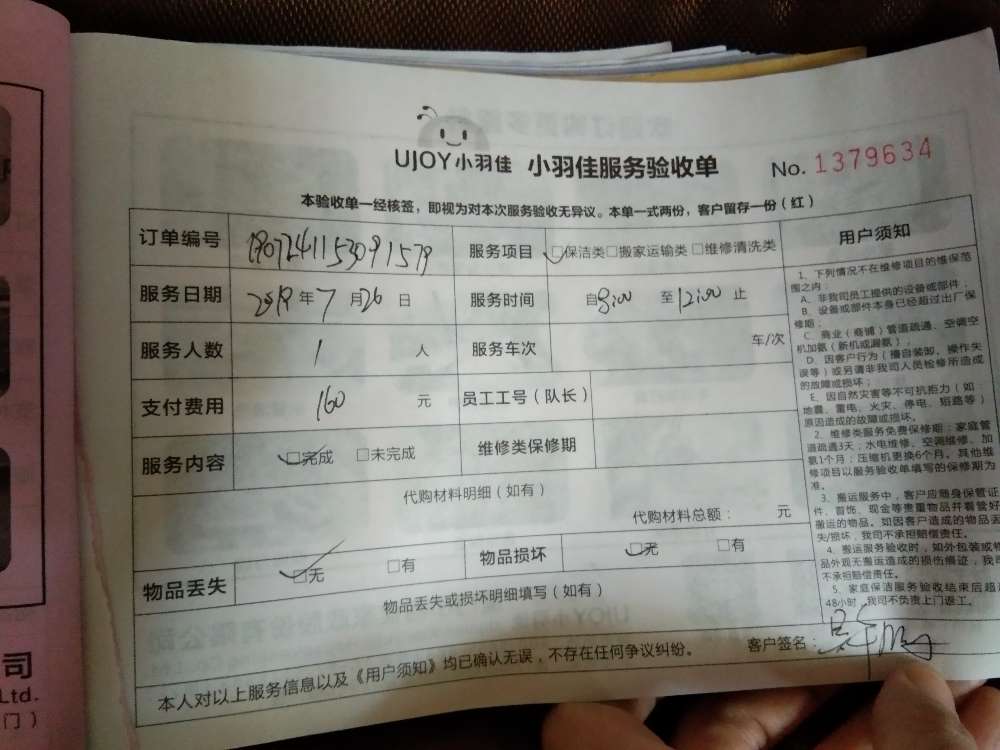 UJOY小羽佳 小羽佳服务验收单 No. 1379634
本验收单一经核签，即视为对本次服务验收无异议。本单一式两份，客户留存一份（红）
订单编号 1907241153091579 服务项目 □保洁类□搬家运输类□维修清洗类
服务日期 2019年7月26日 服务时间 自9:00至12:00止
服务人数 1 人 服务车次 车/次
支付费用 160 元 员工工号（队长）
服务内容 □完成 □未完成 维修类保修期
代购材料明细（如有）
代购材料总额： 元
物品丢失 □无 □有 物品损坏 □无 □有
物品丢失或损坏明细填写（如有）
本人对以上服务信息以及《用户须知》均已确认无误，不存在任何争议纠纷。 客户签名：
用户须知
1、下列情况不在维修项目的维保范
围之内：
A、非我司员工提供的设备或部件；
B、设备或部件本身已经超过出厂保
修期；
C、商业（商铺）管道疏通、空调空
机加氨（新机或漏氨）；
D、因客户行为（擅自装卸、操作失
误等）或另请非我司人员检修所造成
的故障或损坏；
E、因自然灾害等不可抗拒力（如：
地震、雷电、火灾、停电、短路等）
原因造成的故障或损坏。
2、维修类服务免费保修期：家庭管
道疏通3天；水电维修、空调维修、加
氨1个月；压缩机更换6个月。其他维
修项目以服务验收单填写的保修期为
准。
3、搬运服务中，客户应随身保管证
件、首饰、现金等贵重物品并看管好
搬运的物品。如因客户造成的物品丢
失/损坏，我司不承担赔偿责任。
4、搬运服务验收时，如外包装或物
品外观无搬运造成的损伤痕迹，我司
不承担赔偿责任。
5、家庭保洁服务验收结束后超过
48小时，我司不负责上门返工。
司
Ltd.
门）